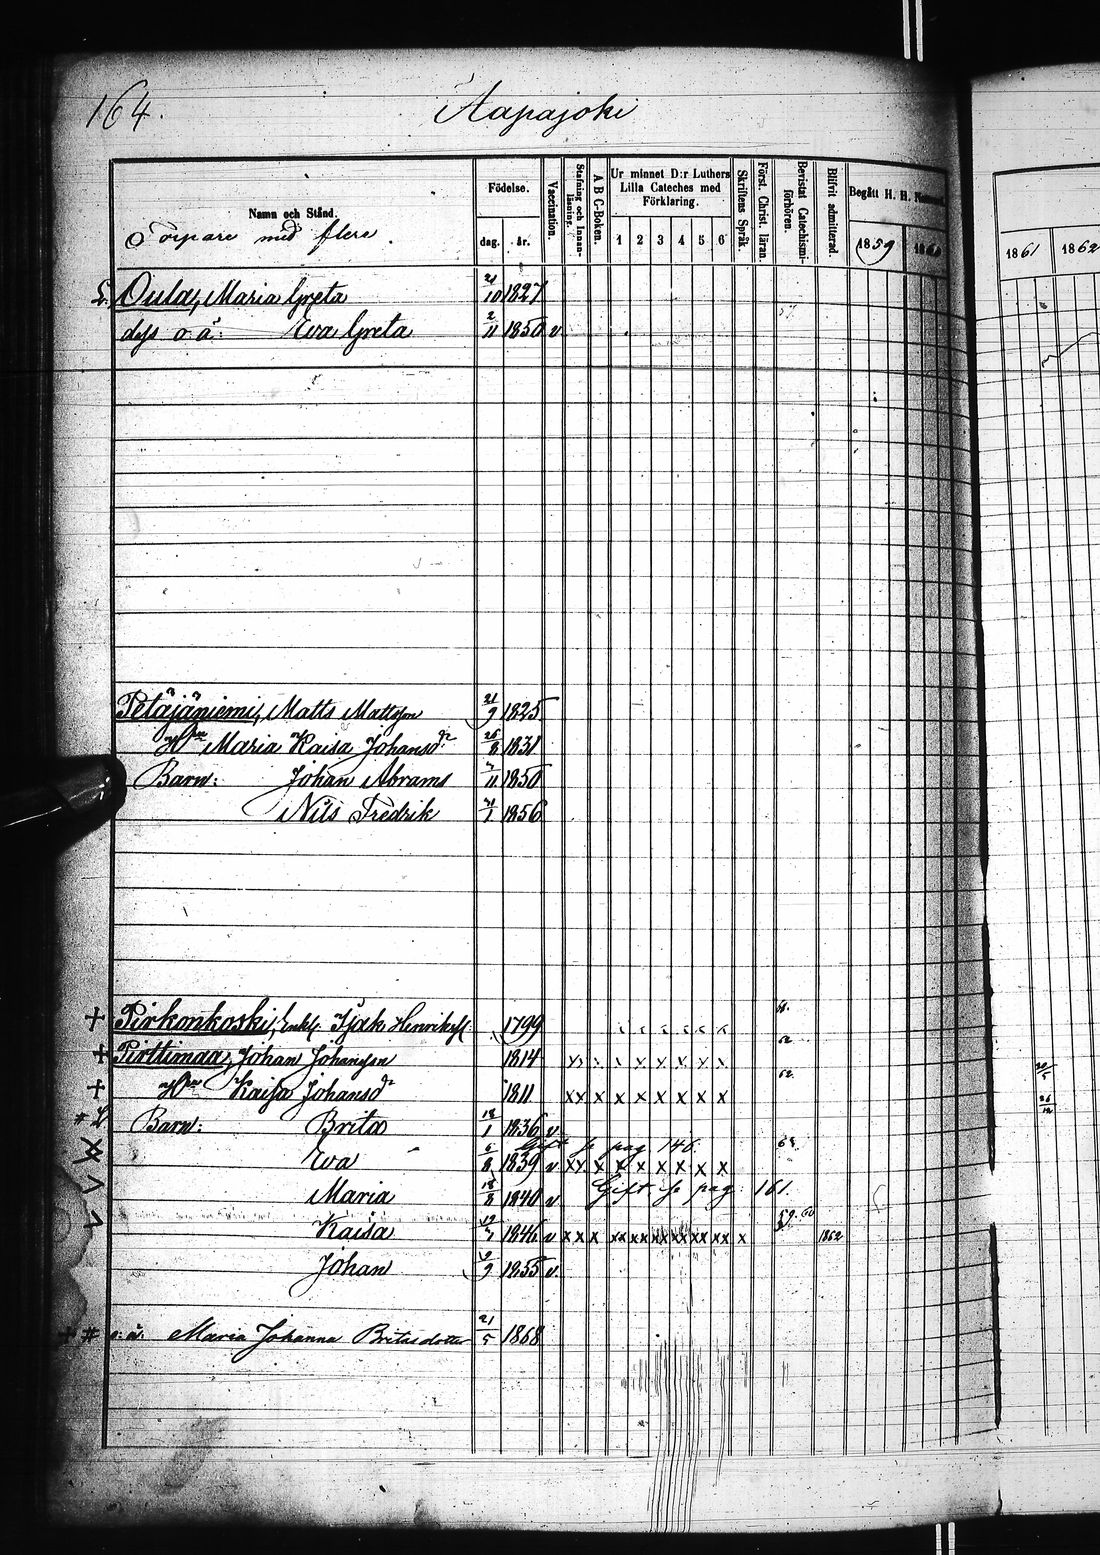 164.
Aapajoki
Namn och Stånd.
Torpare med flere.
Födelse.
dag. år.
Vaccination.
Stafning och Innanläsning.
A B C-Boken.
Ur minnet D:r Luthers Lilla Cateches med Förklaring.
1 2 3 4 5 6
Skriftens Språk.
Först. Christ. läran.
Bevistat Catechismi-förhören.
Blifvit admitterad.
Begått H. H.
1859
1861 1862
Oula, Maria Greta 21/10 1827
dess o. ä: Eva Greta 2/11 1850 v
Petäjäniemi, Matts Mattsson 21/9 1825
Hon Maria Kaisa Johansd:r 26/8 1831
Barn: Johan Abrams 11 1850
Nils Fredrik 1 1856
+ Pirkonkoski, Enkl. Isak Henrikss. 1799
+ Pirttimaa, Johan Johansson 1814 x x x x x x
+ Hon Kaisa Johansd:r 1811 x x x x x x x x x 62.
Barn: Brita 1 1836 v
Gift se pag 146
Eva 6/8 1839 v x x x x x x x x x
Maria 18/8 1840 v Gift se pag 161.
Kaisa 1846 v x x x xx xx xx xx xx xx x 1862
Johan 9 1855 v.
+ # o: ä: Maria Johanna Britasdotter 21/5 1868